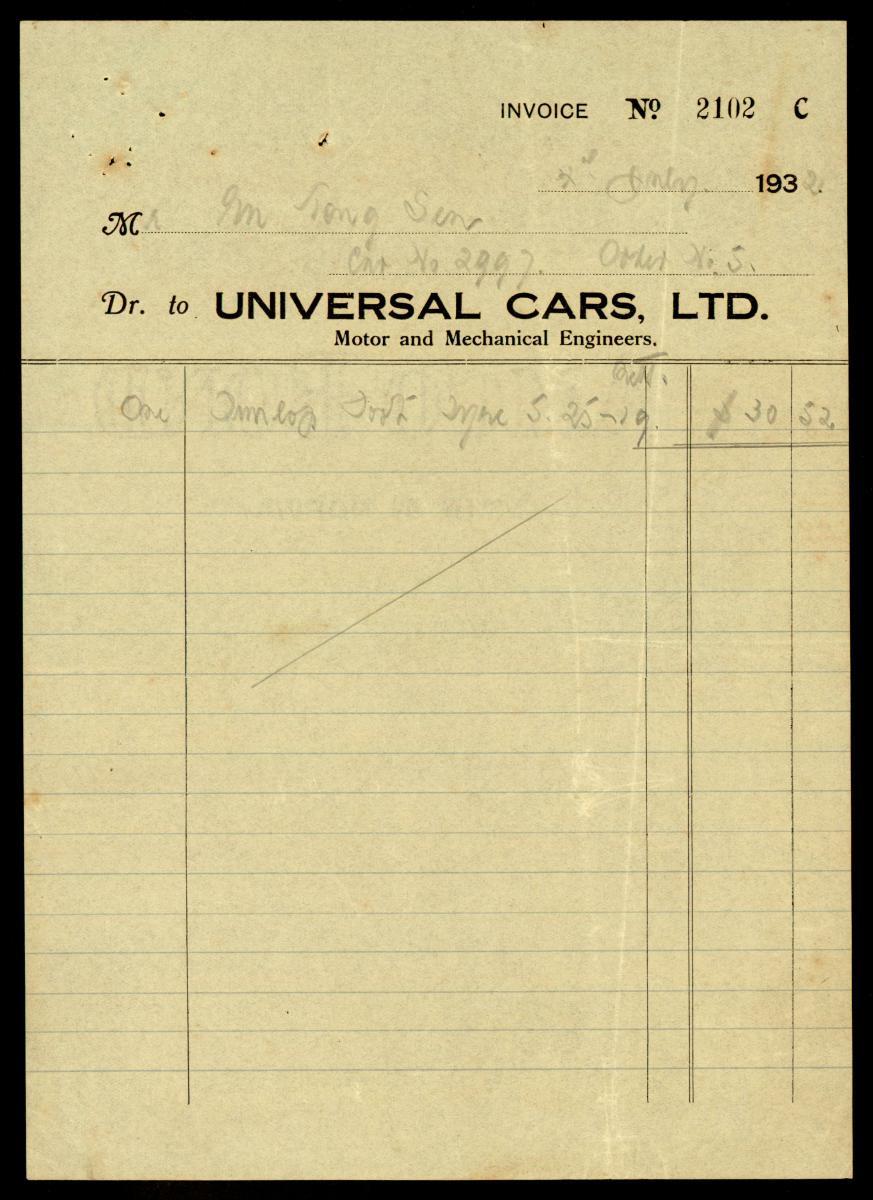 INVOICE Nº 2102 C
July 1932.
Mr Tong Sen
Car No 2997. Order No. 5.
Dr. to UNIVERSAL CARS, LTD.
Motor and Mechanical Engineers.
One Dunlop Tyre 5.25-19. $ 30 52